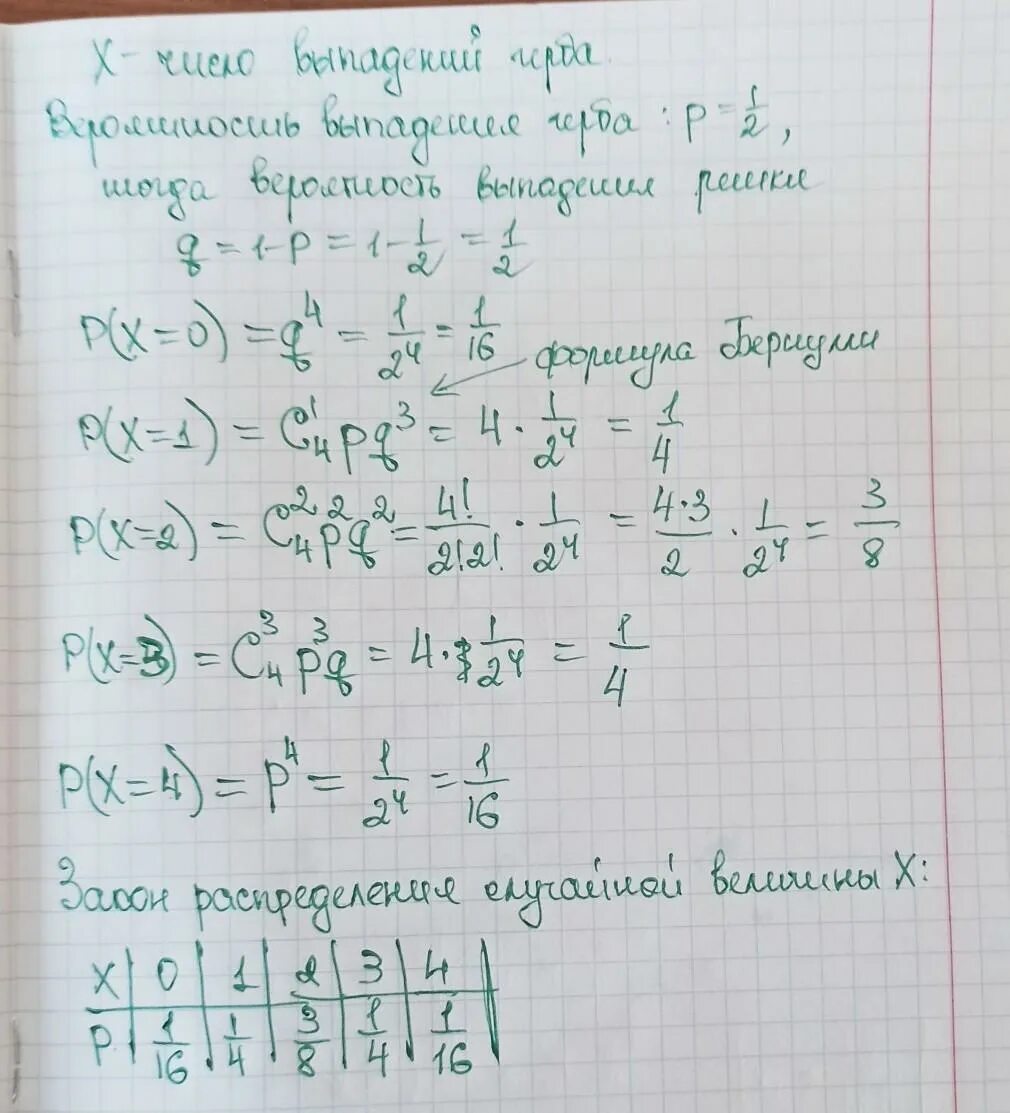 X - число выпадений герба.
Вероятность выпадения герба : p = 1/2,
тогда вероятность выпадения решки
q = 1-p = 1 - 1/2 = 1/2
P(X=0) = q^4 = 1/2^4 = 1/16
формула Бернулли
P(X=1) = C_4^1 p q^3 = 4 · 1/2^4 = 1/4
P(X=2) = C_4^2 p^2 q^2 = 4!/2!2! · 1/2^4 = 4·3/2 · 1/2^4 = 3/8
P(X=3) = C_4^3 p^3 q = 4 · 1/2^4 = 1/4
P(X=4) = p^4 = 1/2^4 = 1/16
Закон распределения случайной величины X:
X | 0 | 1 | 2 | 3 | 4
P | 1/16 | 1/4 | 3/8 | 1/4 | 1/16